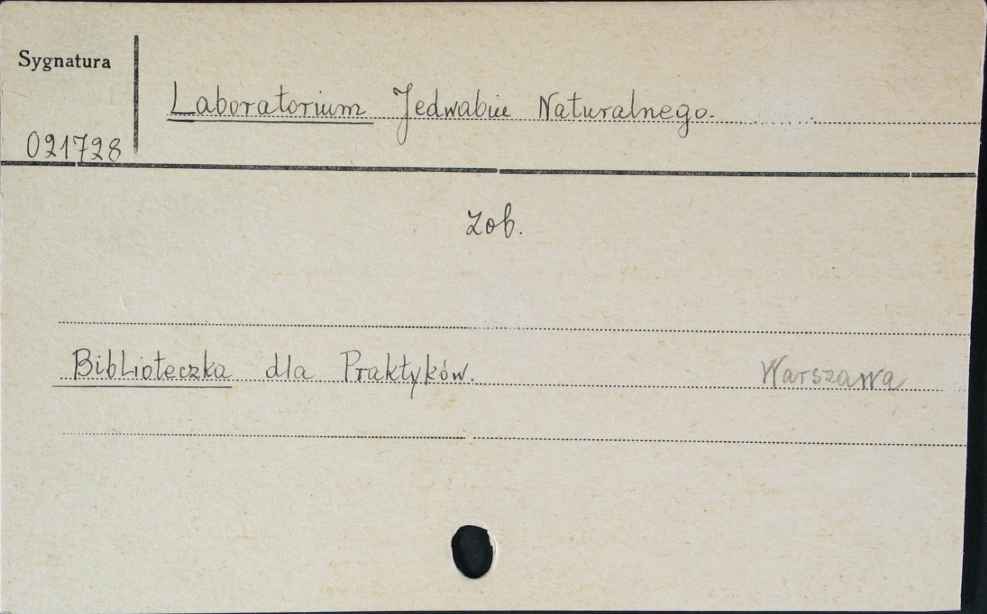 Sygnatura
Laboratorium Jedwabiu Naturalnego.
021728
Zob.
Biblioteczka dla Praktyków. Warszawa